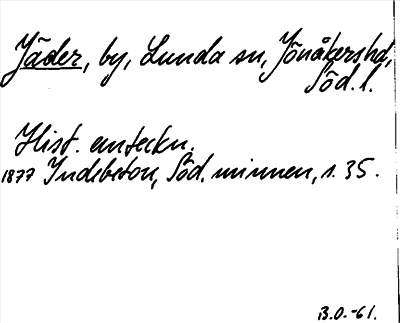 Jäder, by, Lunda sn, Jönåkers hd,
Söd. l.
Hist. anteckn.
1877 Indebetou, Söd. minnen, s. 35.
B.O.-61.